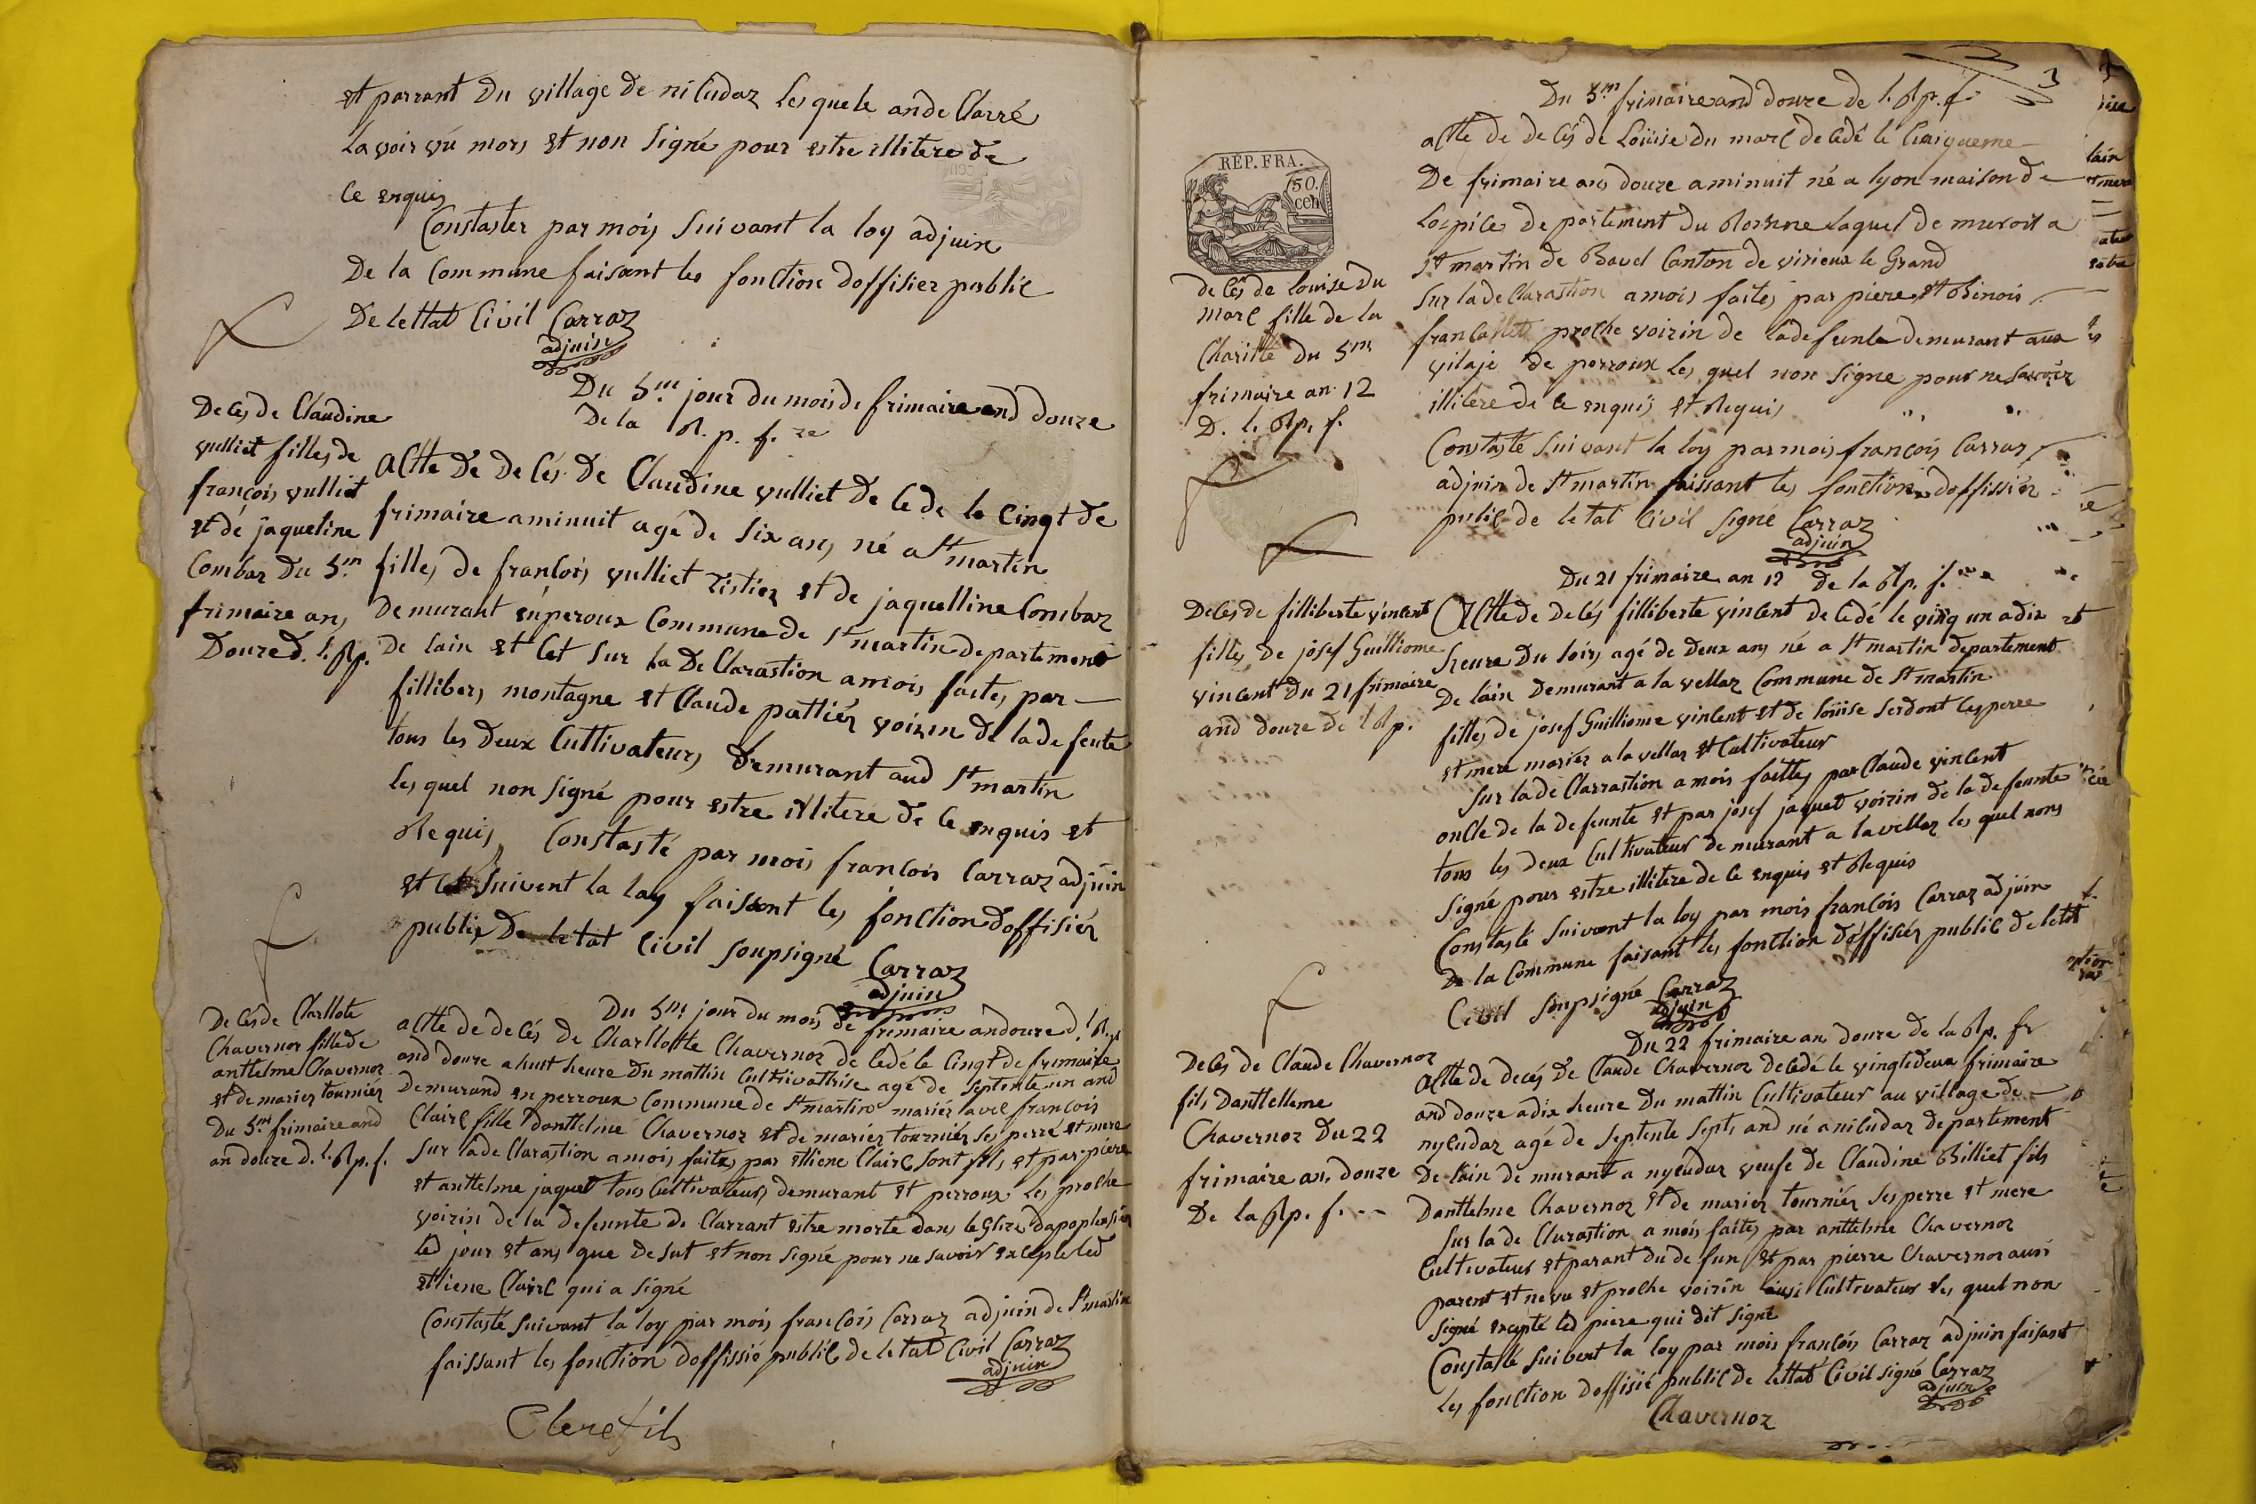 et parrant du village de niCudaz lesquele ande Clarré
lavoir vú mors et non signé pour estre illitere de
Ce enquis
Constaster par mois suivant la loy adjuin
De la Commune faisant les fonction doffisier public
De lettat Civil Carraz
adjuin
Deces de Claudine
vulliet filles de
françois vulliet
et dé jaqueline
Combaz Du 5.me
frimaire ans
Douze d. l. Rp.
Du 5.me jour du mois de frimaire and douze
De la R. p. f.
aCtte De de Cés de Claudine vulliet de Cede le Cinqt de
frimaire aminuit agé de six ans né a St martin
filles de franCois vulliet tistier et de jaquelline Combaz
Demurant enperoux Commune de St martin departement
De lain et Cet sur la De Clarastion amois faites par
fillibers montagne et Claude pattiér voizin de la defente
tous les deux Cultivateurs demurant aud St martin
les quel non signé pour estre illitere de Ce enquis et
Requis Constasté par mois francois Carraz adjuin
et suivent la loy faisant les fonction doffisiér
public De letat Civil soupsigné Carraz
adjuin
Deces de Charllote
Chavernoz fille de
anthelme Chavernoz
et de mariez tourniér
Du 5.me frimaire and
an douze d. l. Rp. f.
Du 5.me jour du mois de frimaire andouze d. l. Rp
aCtte de de Cés de Charllotte Chavernoz de Cedé le Cinqt de frimaire
and douze a huit heure du mattin Cultivathrise agé de septente un and
Demurand en perroux Commune de St martin mariér avec francois
ClairC fille danthelme Chavernoz et de mariez tourniér ses perré et mere
sur la de Clarastion a mois faites par ettiene ClairC sont fils et par piere
et anttelme jaquet tous Cultivateurs demurant et perroux les proche
voizin de la defeunte de Clarrant estre morte dans le
led jour et ans que desut et non signé pour ne savoir exCepte led
ettiene ClairC qui a signé
Constasté suivant la loy par mois franCois Carraz adjuin de St martin
faissant les fonction doffissié public de letat Civil Carraz
adjuin
Clerc fils
3
Du 5.me frimaire and douze de l. Rp. f.
REP. FRA.
50.
cen
de Cés de louise du
marC fille de la
Charitté du 5me
frimaire an 12
D. l. Rp. f.
aCtte de de Cés de Loüise du marC de Cedé le
De frimaire ans douze aminuit né a lyon maison de
lospice de partement du Rosne laquel de muroit a
St martin de Bavel Canton de virieux le Grand
sur la de Clarastion a mois faites par piere et
proche voizin de ladefunte demurant aux
vilaje de perroux les quel non signe pour ne savoir
illitere de Ce enquis et Requis
Constasté suivant la loy par mois françois Carraz
adjuin de St martin faissant les fonction doffissiér
puliC de letat Civil signé Carraz
adjuin
Deces de filliberte vincent
filles de josef Guilliome
vincent du 21 frimaire
and douze de l Rp.
Du 21 frimaire an 12 De la Rp. f.
aCtte de de Cés filliberte vincent de Cedé le ving un adix
heure du soirs agé de Deux ans né a St martin departement
De lain Demurant a la vellaz Commune de St martin
filles de josef Guilliome vincent et de loüise serdont les perre
et mere mariér a la vellaz et Cultivateur
sur la de Clarrastion a mois faittes par Claude vincent
oncle de la defeunte et par josef jaquet voizin de la defeunte
tous les deux Cultivateur de murant a la vellaz les quel nons
signé pour estre illitere de Ce enquis et Requis
Constasté suivant la loy par mois francois Carraz adjuin
De la Commune faisant les fonction d'offisiér public de letat
Civil soupsigné Carraz
adjuin
Deces de Claude Chavernoz
fils Dantelleme
Chavernoz Du 22
frimaire an, douze
De la Rp. f.
Du 22 frimaire an, douze de la Rp. fr
aCtte de decés de Claude Chavernoz deCedé le vingtideux frimaire
and douze a dix heure Du mattin Cultivateur au village de
nyCudaz agé de septente septs and né a niCudaz departement
De lain de murant a nyCudaz veufe de Claudine Billiet fils
Danttelme Chavernoz et de mariez tourniér ses perre et mere
sur la de Clarastion a mois faites par anttelme Chavernoz
Cultivateur et parant du de fun et par pierre Chavernoz aussi
parent et nevu et proche voizin aussi Cultivateur les quel non
signé exCepté led piere qui dit signé
Constasté suivent la loy par mois francois Carraz adjuin faisant
les fonction doffisié public de lettat Civil signé Carraz
adjuin
Chavernoz